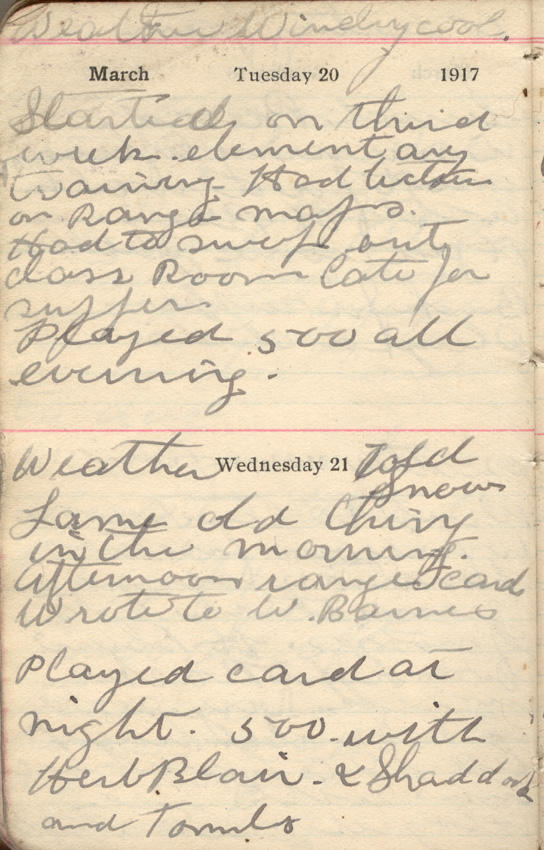 Weather Windy cool.
March Tuesday 20 1917
Started on third
week. elementary
training. Had lecture
on Range maps.
Had to sweep out
class Room late for
supper.
Played 500 all
evening.
Weather Wednesday 21 Cold
Snow
Same old thing
in the morning.
afternoon range card
Wrote to W. Barnes
Played card at
night. 500 with
Herb Blair. & Shaddock
and Tombs